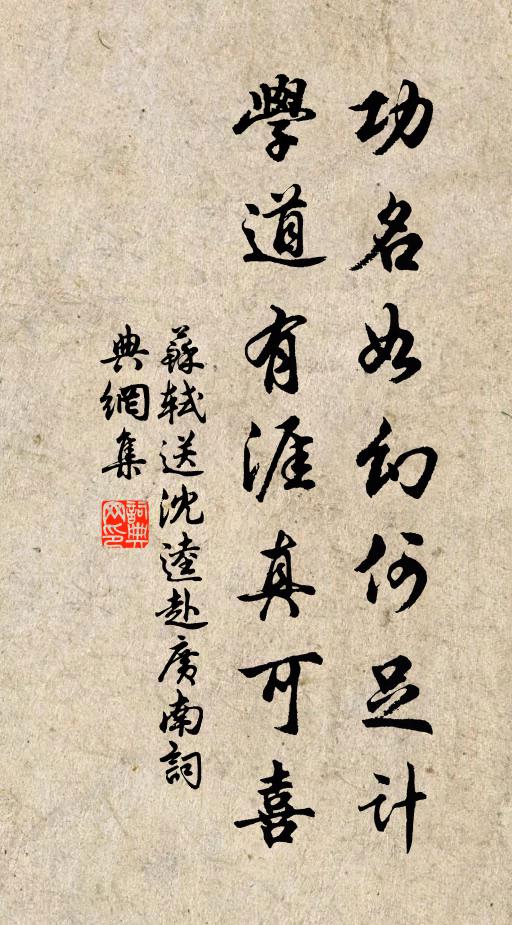 功名如幻何足計
學道有涯真可喜
蘇軾送沈逵赴廣南詞
典網集
詞典
网印